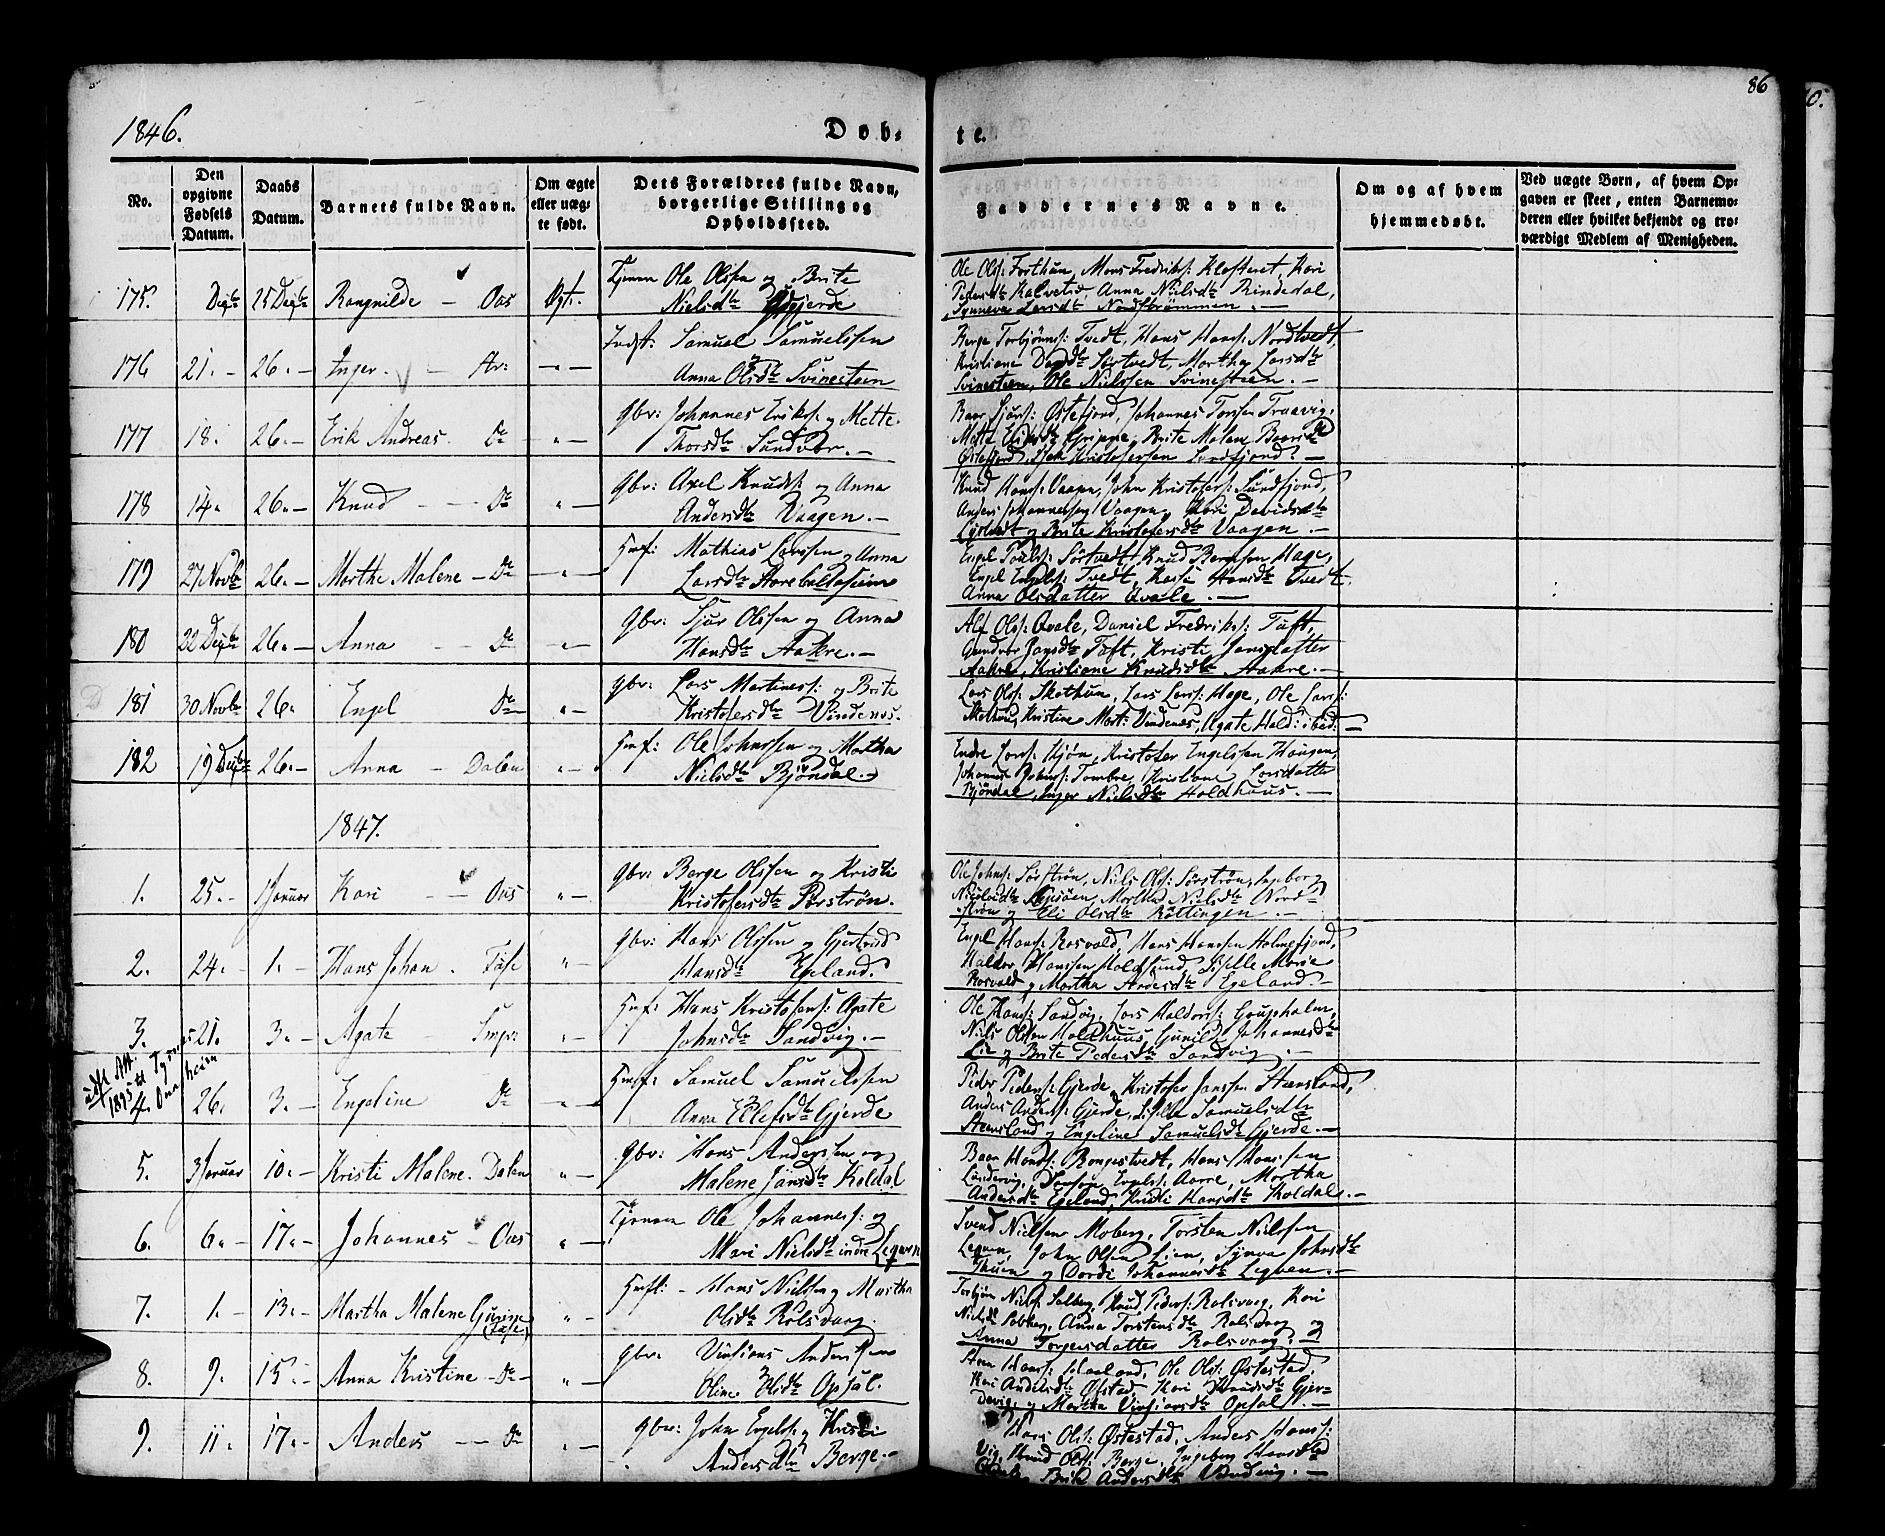 1846.
Døb-
te.
86
No.
Den opgivne Fødsels Datum.
Daabs Datum.
Barnets fulde Navn.
Om ægte eller uægte født.
Dets Forældres fulde Navn, borgerlige Stilling og Opholdssted.
Faddernes Navne.
Om og af hvem hjemmedøbt.
Ved uægte Børn, af hvem Opgaven er skeet, enten Barnemoderen eller hvilket bekjendt og troværdigt Medlem af Menigheden.
175. Decbr 25 Decbr Rangnilde – Oas Ægt. Tjenen Ole Olsen og Brite
Nielsdtr
Ole Ols: Forthun, Mons Fredriks: Klosteret, Kari
Pedersdtr Kalvetid, Anna Nielsdtr Rindedal,
Synneva Larsdtr Nordstrømmen.
176 21.– 26.– Inger. – Indst: Samuel Samuelssen
Anna Olsdtr Svinesteen
Berge Torbjørns: Tvedt, Hans Hans: Nordtvedt,
Kristiane Sørtvedt, Martha Larsdtr
Svinesteen, Ole Nielssen Svinesteen.–
177 18. 26.– Erik Andreas. Do –"– Gbr: Johannes Eriks: og Mette
Thorsdtr Sundvor.–
Baar Sjurs: Østefjord, Johannes Torsen Traavig,
Mette Grinne, Brite Malene Baardsdtr
Østefjord, Kristofersen Sørdfjord.–
178 14. 26.– Knud – Do "– Gbr: Axel Knuds: og Anna
Andersdtr Vaagen.–
Knud Hans: Vaagen, John Kristofers: Sundfjord,
Anders Johannessen Vaagen, Kari Davidsdtr
og Brite Kristofersdtr Vaagen.–
179 27 Novbr 26.– Marthe Malene – Do –"– Hmf: Mathias Larssen og Anna
Larsdtr Storeballeseim
Engel Pouls: Sørtvedt, Knud Berntsen Hage,
Engel Engels: Tvedt, Hansdtr Tvedt
Anna Olsdatter Qvale.–
180 22 Decbr 26.– Anna – Do –"– Gbr: Sjur Olssen og Anna
Hansdtr Aakre.–
Alf Ols: Qvale, Daniel Fredriks: Toft,
Gundvor Jansdtr Toft, Kristi Jansdatter
Aakre, Kristiane Knudsdtr Aakre.–
181 30 Novbr 26. Engel Do "– Gbr: Lars Martines: og Brite
Kristofersdtr Vindenes.
Lars Ols: Skothun, Lars Lars: Hage, Ole Lars:
Kristine Mort: Vindenes, Agate Hald: ibid:–
182 19 Decbr 26.– Anna – Dalen "– Hmf: Ole Johnssen og Martha
Nielsdtr Bjørndal.–
Endre Lars: Kristofer Engelssen Haugen,
Johannes Johns: Tombre, Kristiane Larsdatter
Bjørndal, Inger Nielsdtr Holdhuus.–
1847.
1. 25.– 1 Januar Kari – Oas "– Gbr: Berge Olssen og Kristi
Kristofersdtr Sørstrøn.
Ole Johns: Sørstrøn, Niels Ols: Sørstrøn, Ingeborg
Nielsdtr Martha Nielsdtr Nord-
strøn og Eli Olsdtr Røttingen.–
2. 24.– 1.– Hans Johan. Fuse "– Gbr: Hans Olssen og Gjertrud
Hansdtr Egeland.
Engel Hans: Rosvold, Hans Hanssen Holmefjord,
Haldor Hanssen Holdsund, Siselle Marie
Rosvold og Martha Egeland.–
3. 21. 3.– Agate Smpr: " Hmf: Hans Kristofers: Agate
Johnsdtr Sandvig.–
Ole Hans: Sandvig, Lars Haldors: Gouphalm,
Niels Olssen Holdhuus, Gunild Johannesdtr
Lie og Brite Pedersdtr Sandvig.–
4. 26. 3.– Engeline Do –"– Hmf: Samuel Samuelssen
Anna Elefsdtr Gjerde
Peder Peders: Gjerde, Kristofer Janssen Steensland,
Anders Anders: Gjerde, Siselle Samuelsdtr
Steensland og Engeline Samuelsdtr Gjerde.–
5. 3 Januar 10.– Kristi Malene. Dalen "– Gbr: Hans Anderssen og
Malene Jansdtr Koldal
Baar Hans: Bongestvedt, Hans Hanssen
Lindervig, Engels: Aarre, Martha
Andersdtr Egeland, Kristi Hansdtr Koldal.–
6. 6.– 17.– Johannes – Oas "– Tjenen Ole Johannes: og
Mari Nielsdtr indre Leqven
Svend Nielssen Moberg, Torsten Nielssen
Leqven, John Olsen Lien, Synva Johnsdtr
Thuen og Dordi Johannesdtr Leqven.–
7. 1.– 13.– Martha Malene Gurine (Fuse) "– Hmf: – Hans Nielsen og Martha
Olsdtr Rolsvaag.
Torbjørn Niels: Solberg, Knud Peders: Rolsvaag, Kari
Nielsdtr Solberg, Anna Torstensdtr Rolsvaag og
Anna Torgersdatter Rolsvaag.–
8. 9. 15.– Anna Kristine – Do – "– Gbr: Vinsians Anderssen
Oline Olsdtr Opsal.
Steen Hans: Haaland, Ole Ols: Østestad,
Kari Andersdtr Øfstad, Kari Knudsdtr Gjer-
devig, og Martha Vinsiansdtr Opsal.–
9. 11. 17.– Anders – Do "– Gbr: John Engels: og Kristi
Andersdtr Berge.–
Hans Ols: Østestad, Anders Hans:
Vig, Knud Ols: Berge, Ingeborg Hansdtr
Brite Andersdtr Vindvig.–